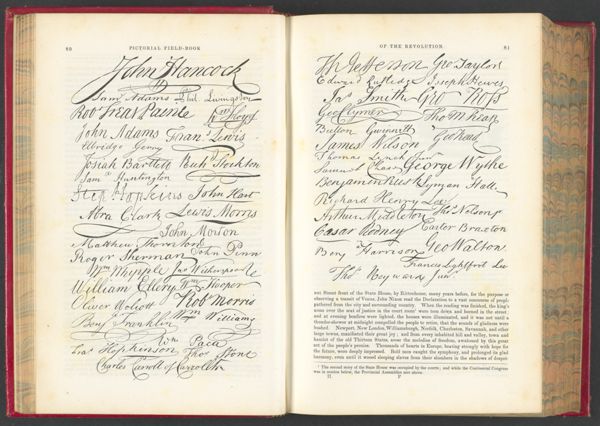 80 PICTORIAL FIELD-BOOK
John Hancock
Sam Adams Phil. Livingston
Robt Treat Paine Wm Floyd
John Adams Frans. Lewis
Elbridge Gerry
Josiah Bartlett Richd Stockton
Saml Huntington
Step Hopkins John Hart
Abra Clark Lewis Morris
John Morton
Matthew Thornton
Roger Sherman John Penn
Wm Whipple Jno Witherspoon
William Ellery Wm Hooper
Oliver Wolcott Robt Morris
Benj Franklin Wm Williams
Fras Hopkinson Wm Paca
Thos Stone
Charles Carroll of Carrollton
OF THE REVOLUTION 81
Th Jefferson Geo Taylor
Edward Rutledge Joseph Hewes
Jas Smith Geo Ross
Geo Clymer Tho M:Kean
Button Gwinnett
James Wilson Geo Read
Thomas Lynch Junr
Samuel Chase George Wythe
Benjamin Rush Lyman Hall
Richard Henry Lee
Arthur Middleton Thos Nelson jr
Cæsar Rodney Carter Braxton
Benj Harrison Geo Walton
Francis Lightfoot Lee
Thos Heyward Junr
nut Street front of the State House, by Rittenhouse, many years before, for the purpose of
observing a transit of Venus, John Nixon read the Declaration to a vast concourse of people
gathered from the city and surrounding country. When the reading was finished, the king's
arms over the seat of justice in the court room were torn down and burned in the street;
and at evening bonfires were lighted, the houses were illuminated, and it was not until a
thunder-shower at midnight compelled the people to retire, that the sounds of gladness were
hushed. Newport, New London, Williamsburgh, Norfolk, Charleston, Savannah, and other
large towns, manifested their great joy; and from every inhabited hill and valley, town and
hamlet of the old Thirteen States, arose the melodies of freedom, awakened by this great
act of the people's proxies. Thousands of hearts in Europe, beating strongly with hope for
the future, were deeply impressed. Bold men caught the symphony, and prolonged its glad
harmony, even until it wooed sleeping slaves from their slumbers in the shadows of despot-
1 The second story of the State House was occupied by the courts; and while the Continental Congress
was in session below, the Provincial Assemblies met above.
II. F